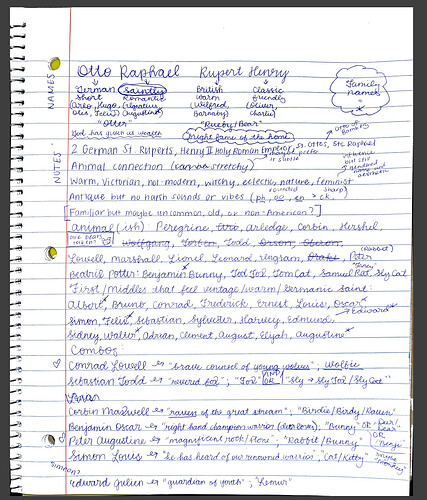 NAMES
Otto Raphael Rupert Henry
German saintly British Classic
short Romantic warm friendly
(Arlo, Hugo, (Ignatius (Wilfred, (Oliver,
Otis, Felix) Augustine) Barnaby) Charlie)
Family names = *
"Otter" "Rupey/Bear"
God has given us wealth bright fame of the home
NOTES:
2 German St. Ruperts, Henry II Holy Roman Emperor, St. Ottos, Sts. Raphael
Animal connection
is subtle
Warm, Victorian, not-modern, witchy, eclectic, nature, feminist
Antique but no harsh sounds or vibe
Familiar but maybe uncommon, old, or non-American?
Animal(ish) Peregrine, Arledge, Corbin, Hershel,
Wolfgang, Todd, Orson, Oberon,
Lowell, Marshall, Lionel, Leonard, Ingram, Drake, Peter
(Rabbit)
Beatrix Potter: Benjamin Bunny, Tod Fox, Tom Cat, Samuel Rat, Sly Cat
First/middles that feel vintage/warm/Germanic saint:
Albert, Bruno, Conrad, Frederick, Ernest, Louis, Oscar,
Edward
Simon, Felix, Sebastian, Sylvester, Harvey, Edmund,
Sidney, Walter, Adrian, Clement, August, Elijah, Augustine
Combos:
Conrad Lowell "brave counsel of young wolves"; Wolfie
Sebastian Todd "revered fox"; "Fox" OR "Sly → Sly Fox/Sly Cat"
Corbin Maxwell "raven of the great stream"; "Birdie/Birdy/Raven"
Benjamin Oscar "right hand champion warrior (deer lover); "Bunny" OR
Peter Augustine "magnificent rock/stone" "Rabbit/Bunny" OR
Simon Louis "he has heard of our renowned warrior"; "Cat/Kitty"
Edward Julien "guardian of youth"; "Lemur"